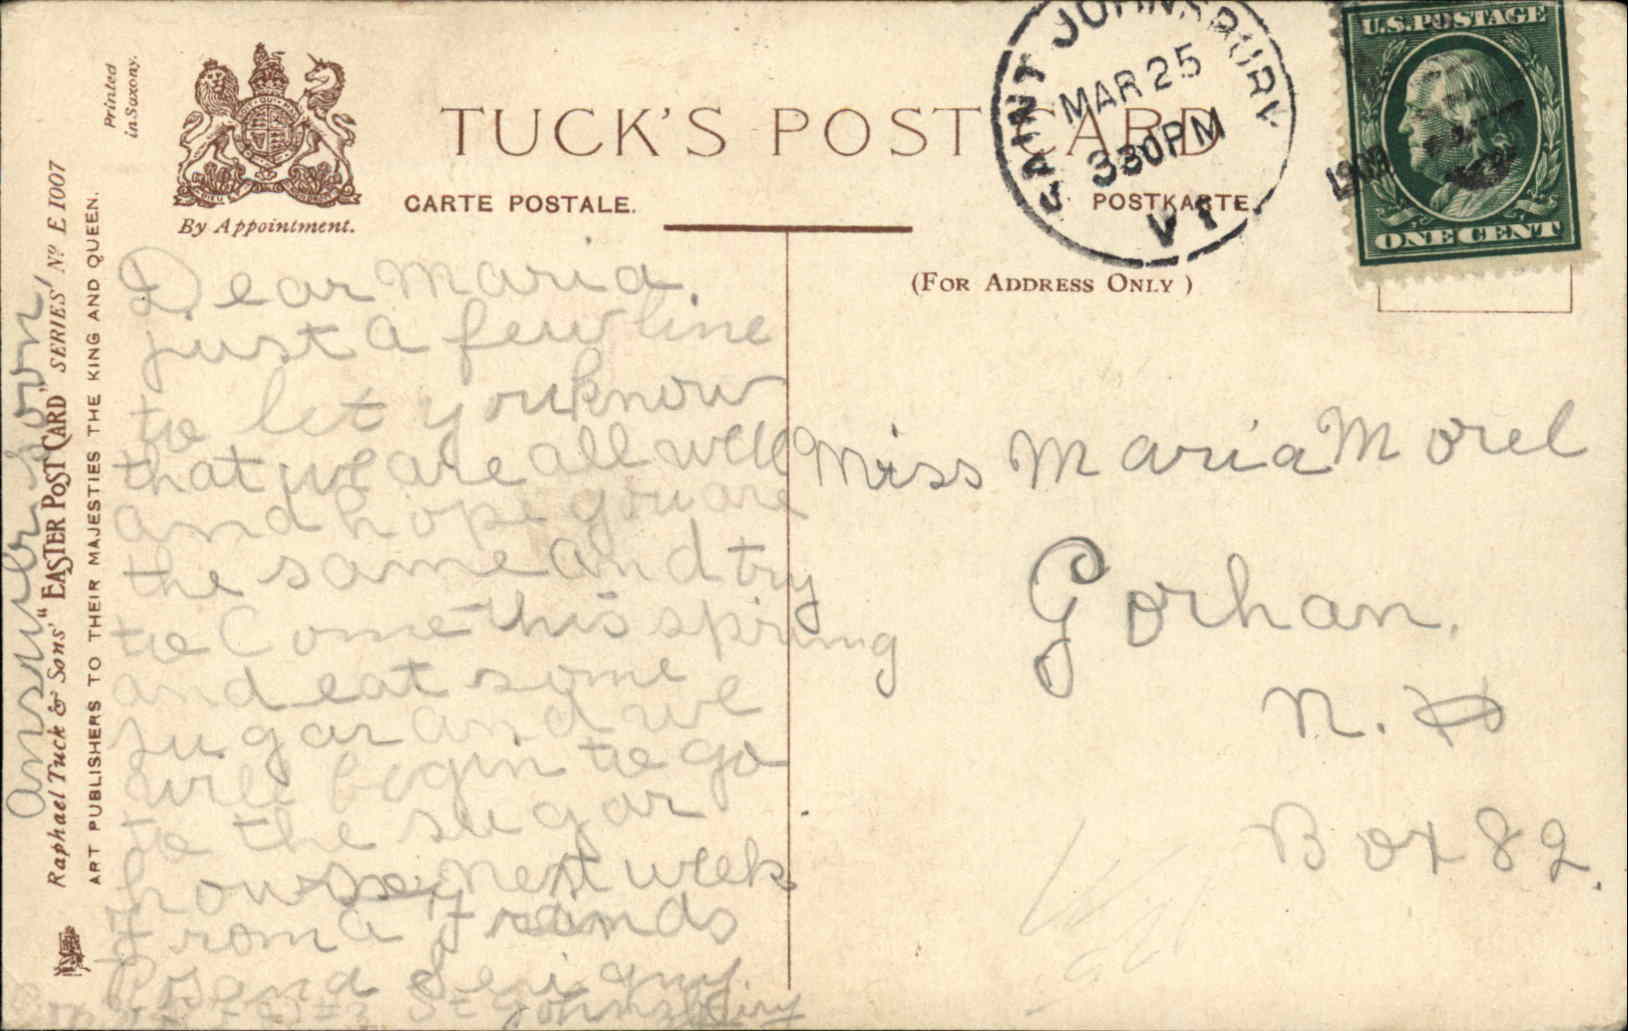 Printed
in Saxony.
By Appointment.
TUCK'S POST CARD
CARTE POSTALE.
POSTKARTE.
(FOR ADDRESS ONLY )
SAINT JOHNSBURY
MAR 25
330PM
VT
1909
U.S. POSTAGE
ONE CENT
Raphael Tuck & Sons' "EASTER POST CARD" SERIES Nº E 1007
ART PUBLISHERS TO THEIR MAJESTIES THE KING AND QUEEN.
answer soon
Dear Maria.
just a few line
to let you know
that we are all well
and hope you are
the same and try
to Come this spring
and eat some
sugar and we
will begin to go
to the sugar
house next week
from a friands
St Johnsbury
Miss Maria Morel
Gorhan.
N. H
Box 82.